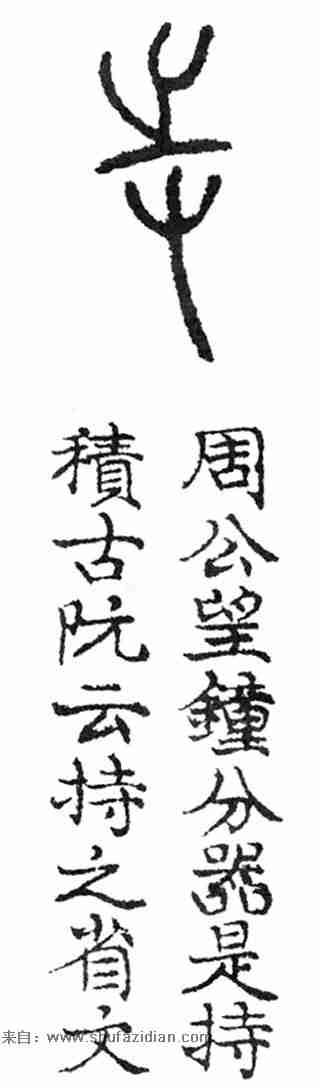 寺
周公望鐘分器是持
積古阮云持之省文
来自：www.shufazidian.com